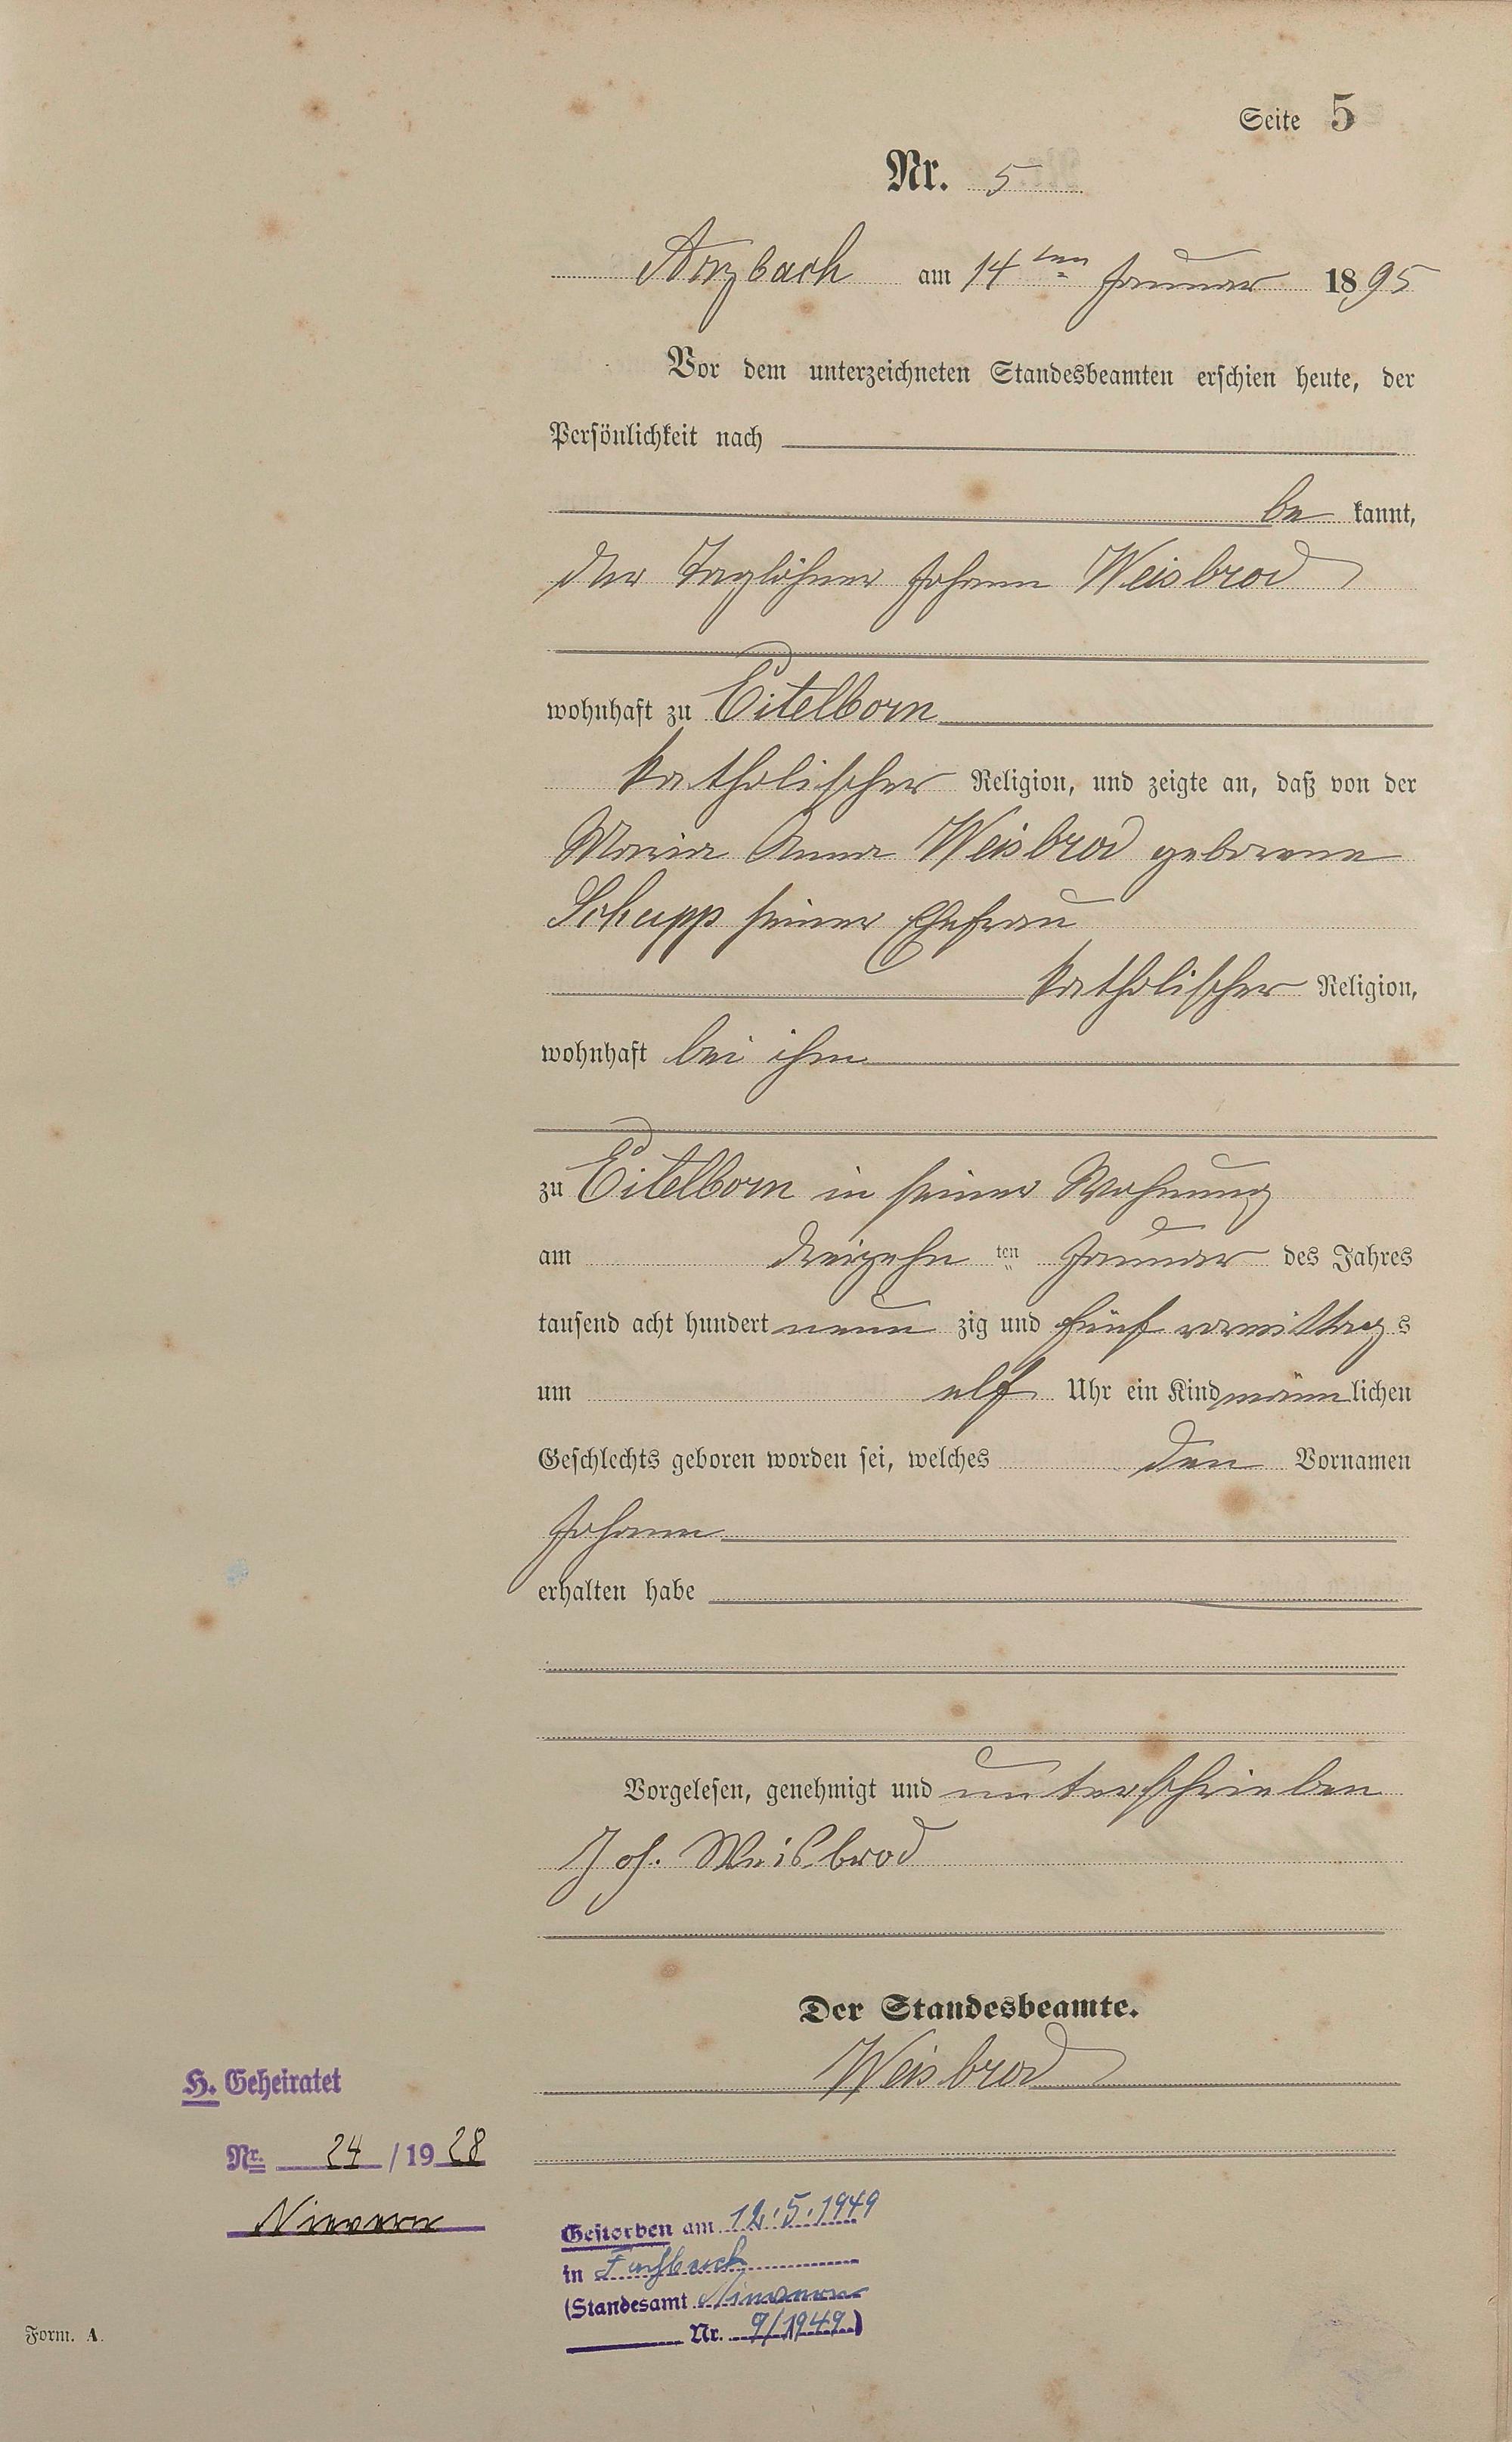 Seite 5
Nr. 5
Arzbach am 14ten Januar 1895
Vor dem unterzeichneten Standesbeamten erschien heute, der
Persönlichkeit nach
be kannt,
der Taglöhner Johann Weisbrod
wohnhaft zu Eitelborn
katholischer Religion, und zeigte an, daß von der
Maria Anna Weisbrod geborene
Schupp seiner Ehefrau
katholischer Religion,
wohnhaft bei ihm
zu Eitelborn in seiner Wohnung
am dreizehn ten Januar des Jahres
tausend acht hundert neun zig und fünf vormittags
um elf Uhr ein Kind männlichen
Geschlechts geboren worden sei, welches den Vornamen
Johann
erhalten habe
Vorgelesen, genehmigt und unterschrieben
Joh. Weisbrod
Der Standesbeamte.
Weisbrod
H. Geheiratet
Nr. 24 / 1928
Nievern
Gestorben am 12.5.1949
in Fachbach
(Standesamt Nievern
Nr. 9/1949)
Form. A.